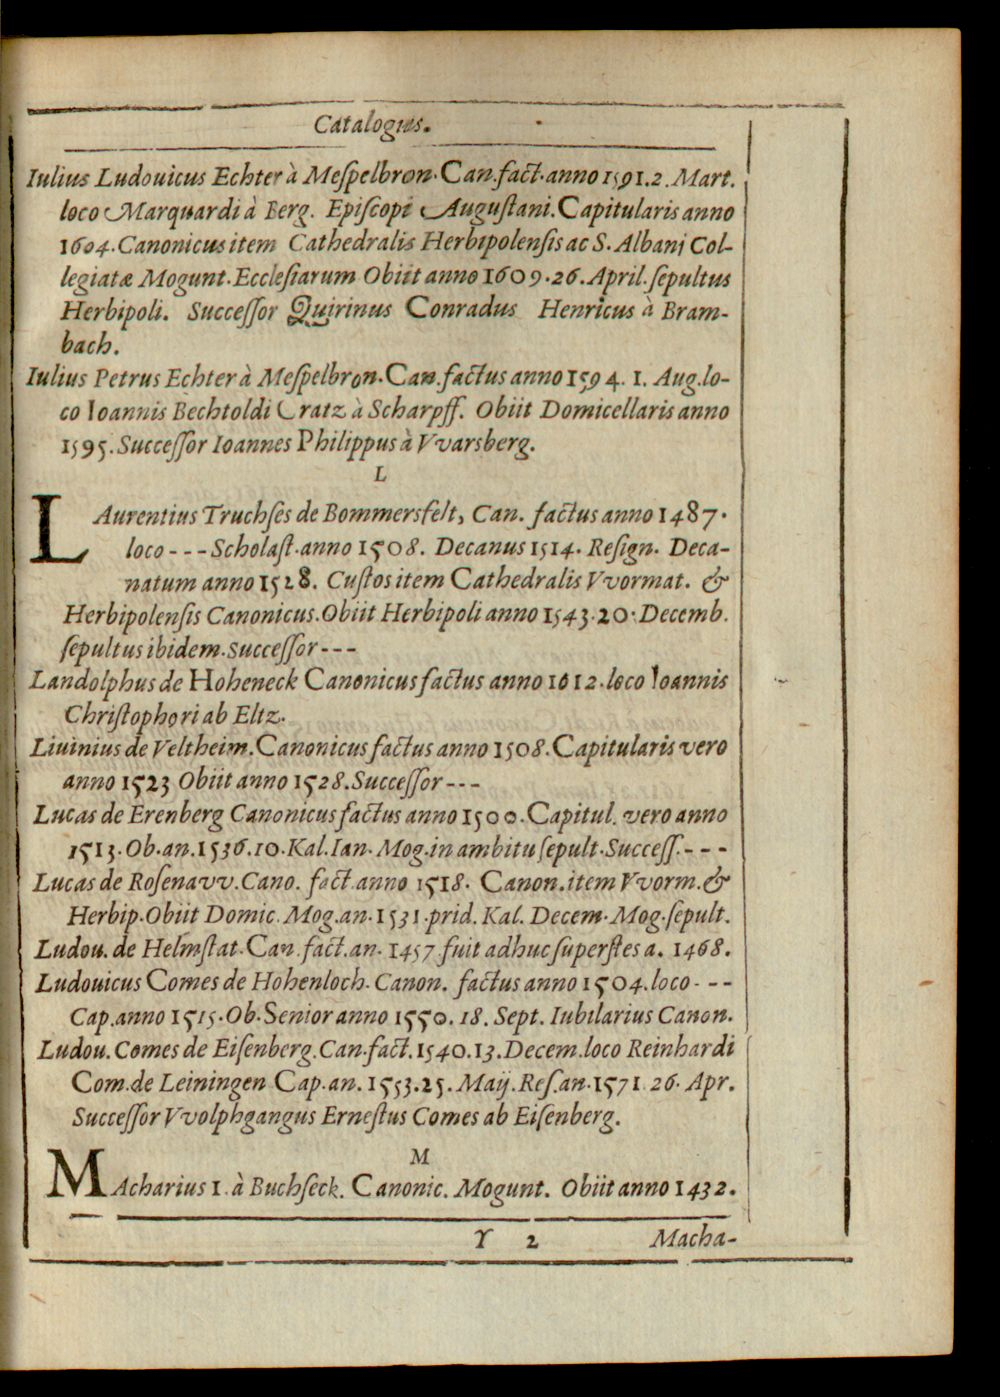 Catalogus.
Iulius Ludouicus Echter à Meſpelbron. Can. fact. anno 1591. 2. Mart.
loco Marquardi à Berg. Epiſcopi Auguſtani. Capitularis anno
1604. Canonicus item Cathedralis Herbipolenſis ac S. Albani Col-
legiatæ Mogunt. Eccleſiarum Obiit anno 1609. 26. April. ſepultus
Herbipoli. Succeſſor Quirinus Conradus Henricus à Bram-
bach.
Iulius Petrus Echter à Meſpelbron. Can. factus anno 1594. 1. Aug. lo-
co Ioannis Bechtoldi Cratz à Scharpff. Obiit Domicellaris anno
1595. Succeſſor Ioannes Philippus à Vvarsberg.
L
LAurentius Truchſes de Bommersfelt, Can. factus anno 1487.
loco - - - Scholaſt. anno 1508. Decanus 1514. Reſign. Deca-
natum anno 1528. Cuſtos item Cathedralis Vvormat. &
Herbipolenſis Canonicus. Obiit Herbipoli anno 1543. 20. Decemb.
ſepultus ibidem. Succeſſor - - -
Landolphus de Hoheneck Canonicus factus anno 1612. loco Ioannis
Chriſtophori ab Eltz.
Liuinius de Veltheim. Canonicus factus anno 1508. Capitularis vero
anno 1523 Obiit anno 1528. Succeſſor - - -
Lucas de Erenberg Canonicus factus anno 1500. Capitul. vero anno
1513. Ob. an. 1536. 10. Kal. Ian. Mog. in ambitu ſepult. Succeſſ. - - -
Lucas de Roſenavv. Cano. fact. anno 1518. Canon. item Vvorm. &
Herbip. Obiit Domic. Mog. an. 1531. prid. Kal. Decem. Mog. ſepult.
Ludou. de Helmſtat. Can. fact. an. 1457 fuit adhuc ſuperſtes a. 1468.
Ludouicus Comes de Hohenloch. Canon. factus anno 1504. loco - - -
Cap. anno 1515. Ob. Senior anno 1550. 18. Sept. Iubilarius Canon.
Ludou. Comes de Eiſenberg. Can. fact. 1540. 13. Decem. loco Reinhardi
Com. de Leiningen Cap. an. 1553. 25. Maij. Reſ. an. 1571 26. Apr.
Succeſſor Vvolphgangus Erneſtus Comes ab Eiſenberg.
M
MAcharius I. à Buchſeck. Canonic. Mogunt. Obiit anno 1432.
Y 2 Macha-